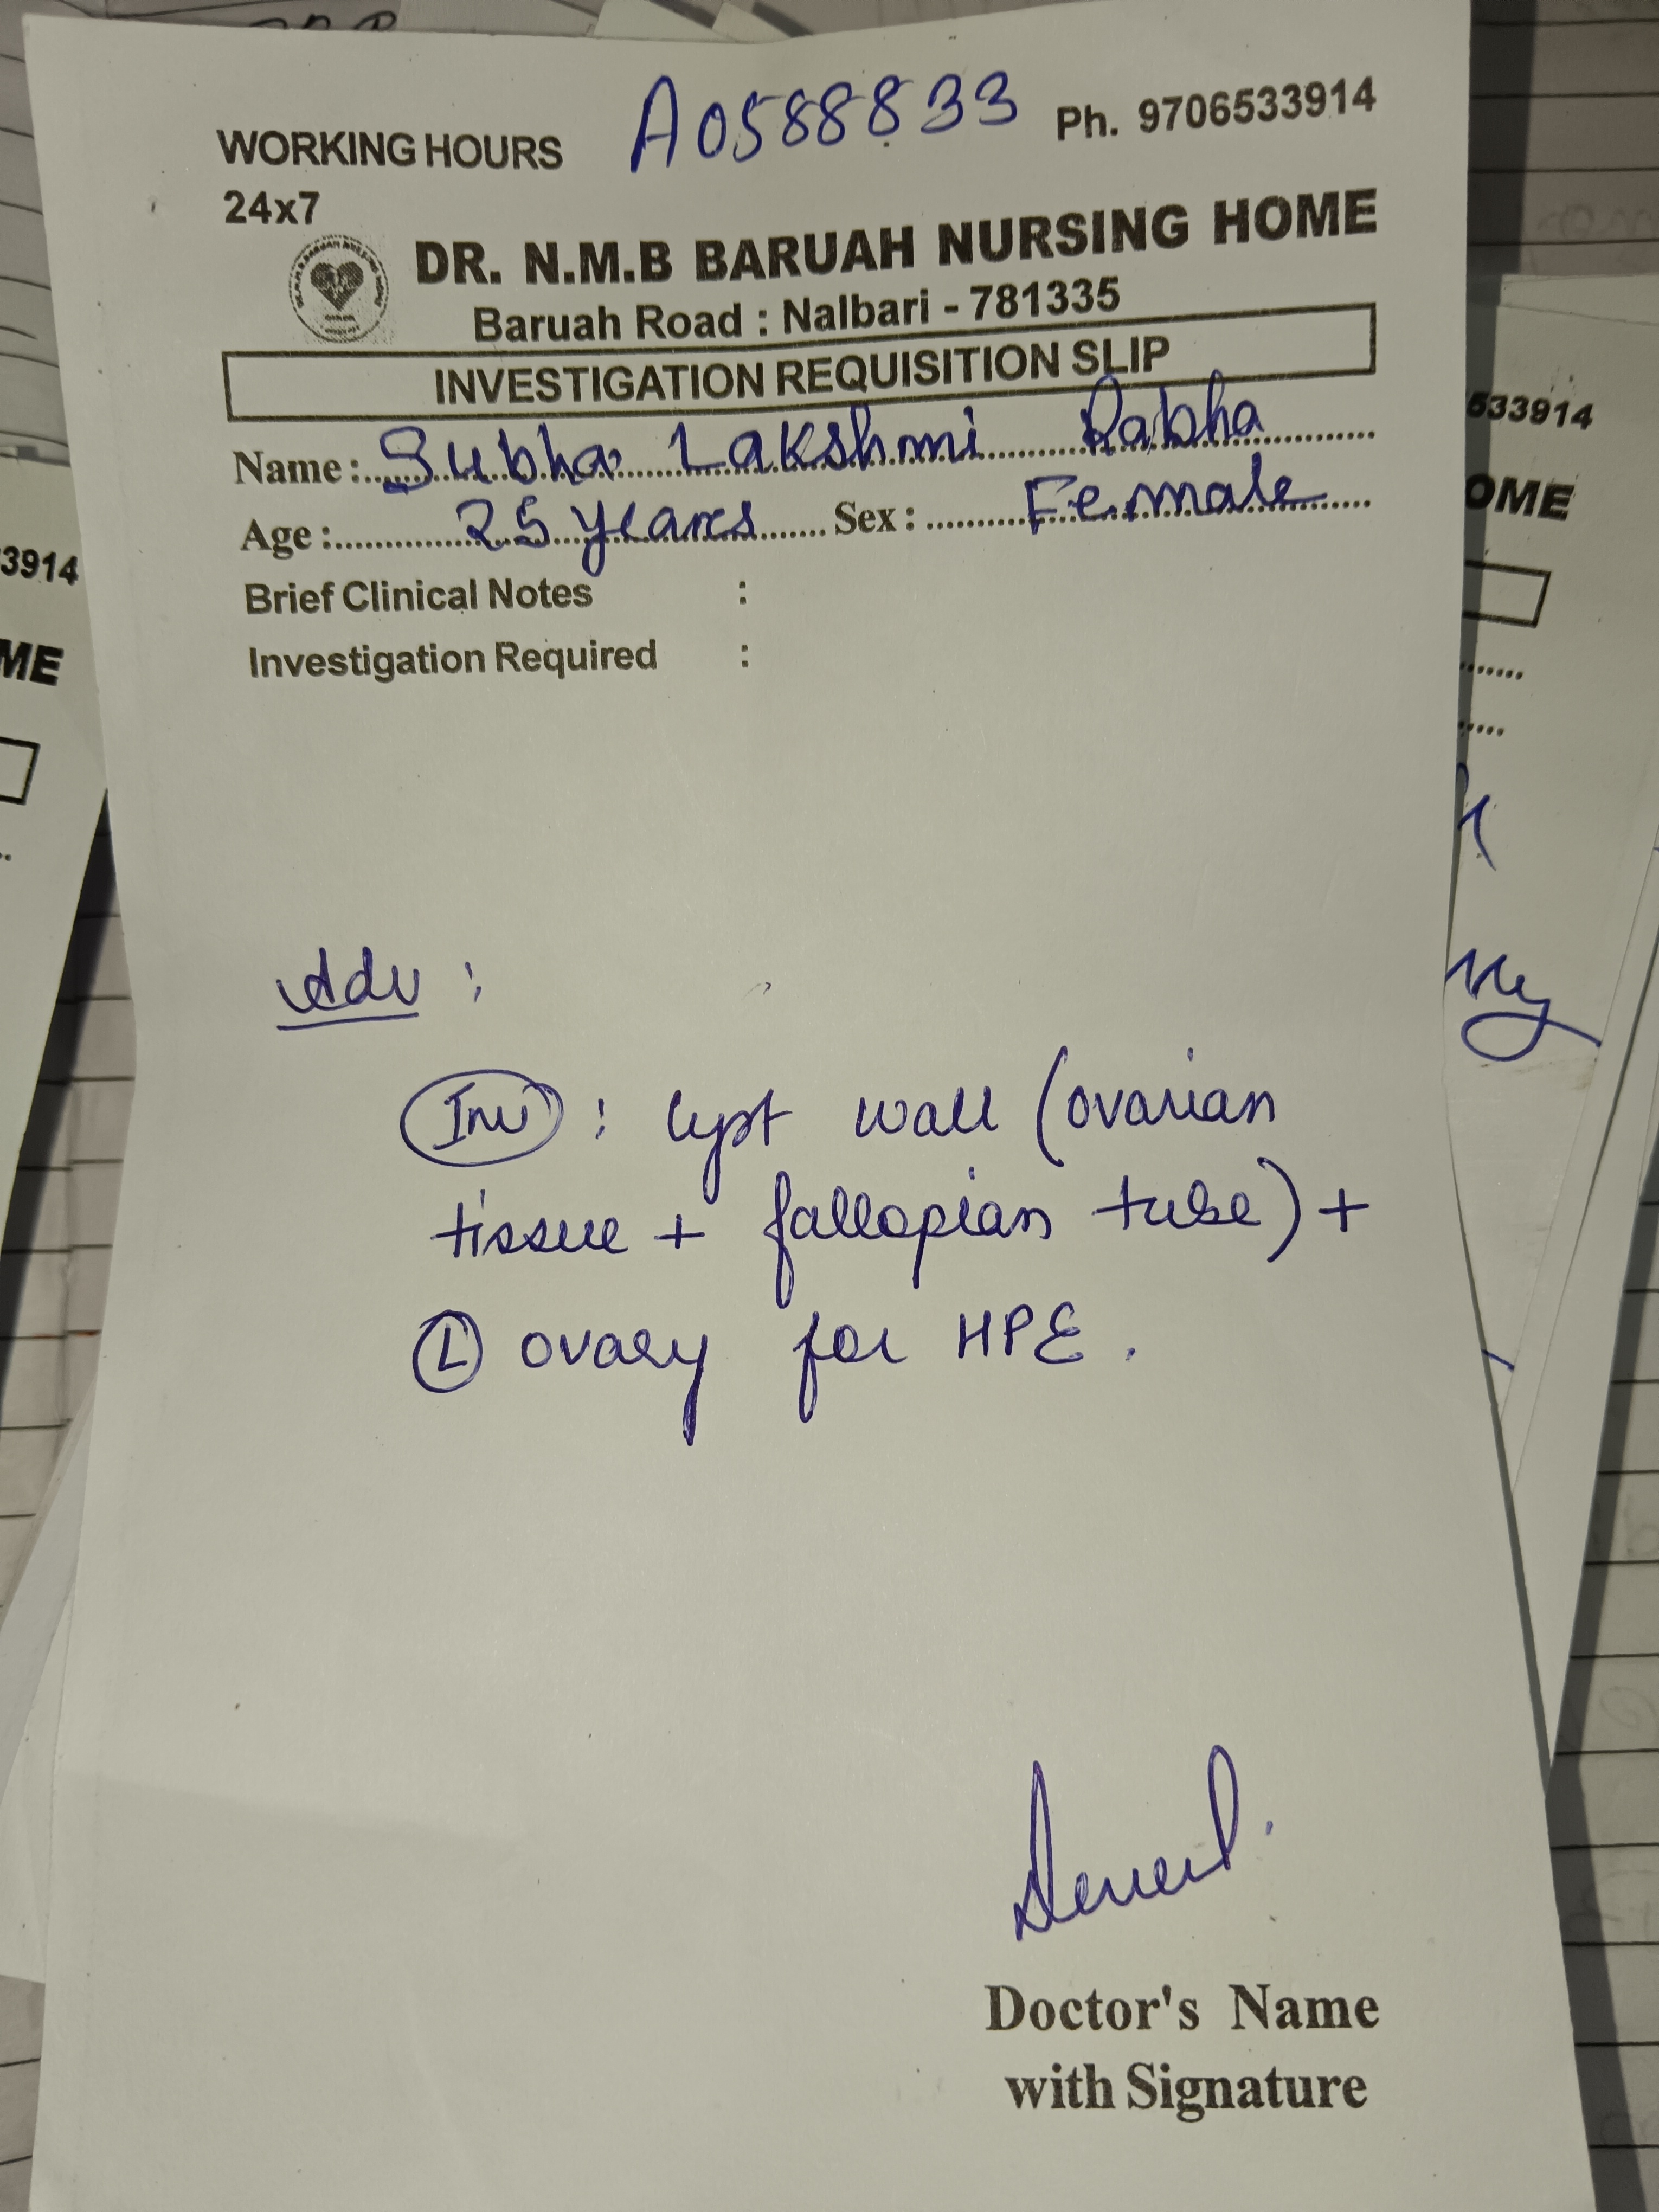 WORKING HOURS A0588833 Ph. 9706533914
24x7
DR. N.M.B BARUAH NURSING HOME
Baruah Road : Nalbari - 781335
INVESTIGATION REQUISITION SLIP
Name : Subha Lakshmi Rabha
Age : 25 years Sex : Female
Brief Clinical Notes :
Investigation Required :
Adv :
Inv : Cyst wall (ovarian
tissue + fallopian tube) +
L ovary for HPE .
Doctor's Name
with Signature
533914
OME
3914
ME